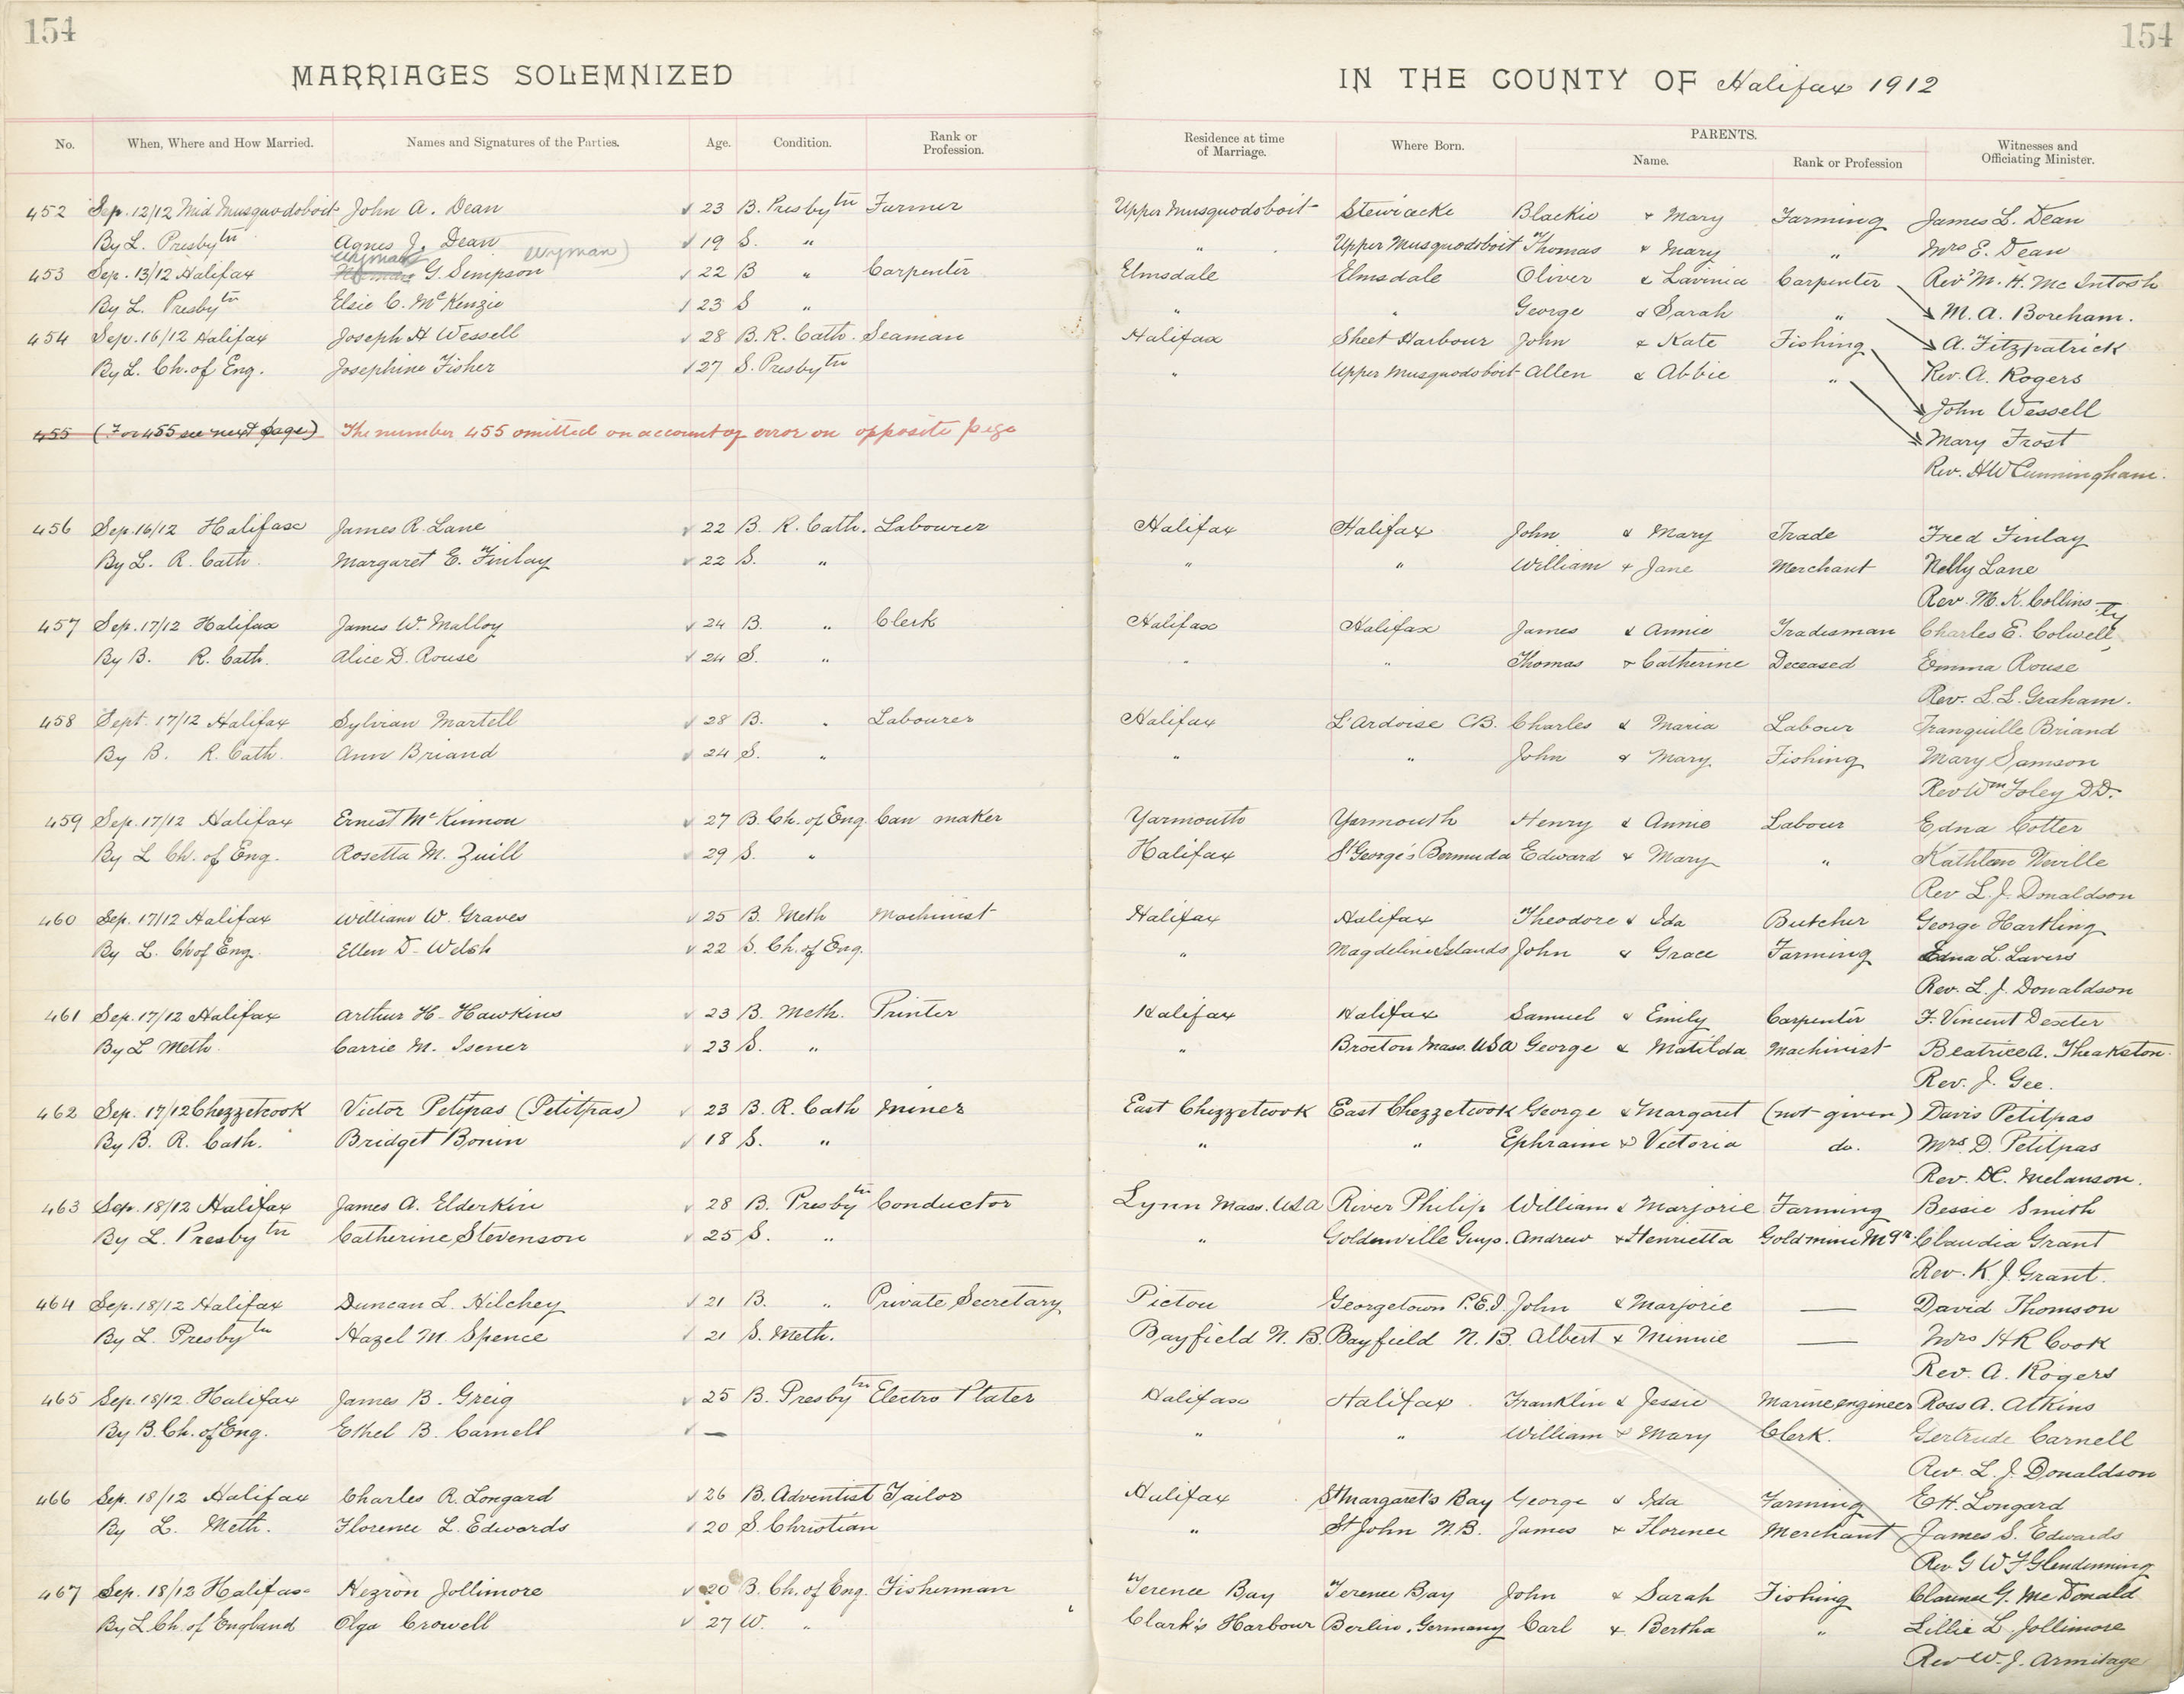 154
154
MARRIAGES SOLEMNIZED IN THE COUNTY OF Halifax 1912
No. When, Where and How Married. Names and Signatures of the Parties. Age. Condition. Rank or Profession. Residence at time of Marriage. Where Born. PARENTS. Name. Rank or Profession Witnesses and Officiating Minister.
452 Sep. 12/12 Mid Musquodoboit John A. Dean √ 23 B. Presbytn Farmer Upper Musquodoboit Stewiacke Blackie & Mary Farming James L. Dean
By L. Presbytn Agnes J. Dean √ 19 S. " " Upper Musquodoboit Thomas & Mary " Mrs E. Dean
Wyman Wyman)
453 Sep. 13/12 Halifax G. Simpson √ 22 B " Carpenter Elmsdale Elmsdale Oliver & Lavinia Carpenter Revd M. H. McIntosh
By L. Presbytn Elsie C. McKenzie √ 23 S " " " George & Sarah " M. A. Boreham.
454 Sep. 16/12 Halifax Joseph H Wessell √ 28 B. R. Cath. Seaman Halifax Sheet Harbour John & Kate Fishing A. Fitzpatrick
By L. Ch. of Eng. Josephine Fisher √ 27 S. Presbytn " Upper Musquodoboit Allen & Abbie " Rev. A. Rogers
John Wessell
455 (For 455 see next page) The number 455 omitted on account of error on opposite page
Mary Frost
Rev. H W Cunningham.
456 Sep. 16/12 Halifax James R. Lane √ 22 B. R. Cath. Labourer Halifax Halifax John & Mary Trade Fred Finlay
By L. R. Cath. Margaret E. Finlay √ 22 S. " " " William & Jane Merchant Nelly Lane
Rev. M. K. Collins
457 Sep. 17/12 Halifax James W. Malloy √ 24 B. " Clerk Halifax Halifax James & Annie Tradesman Charles E. Colwell
By B. R. Cath. Alice D. Rouse √ 24 S. " " " Thomas & Catherine Deceased Emma Rouse
Rev. L. L. Graham.
458 Sept. 17/12 Halifax Sylvian Martell √ 28 B. " Labourer Halifax L'Ardoise C.B. Charles & Maria Labour Tranquille Briand
By B. R. Cath. Ann Briand √ 24 S. " " " John & Mary Fishing Mary Samson
Rev Wm Foley D.D.
459 Sep. 17/12 Halifax Ernest McKinnon √ 27 B. Ch. of Eng. Can maker Yarmouth Yarmouth Henry & Annie Labour Edna Cotter
By L Ch. of Eng. Rosetta M. Zuill √ 29 S. " Halifax St George's Bermuda Edward & Mary " Kathleen Neville
Rev L. J. Donaldson
460 Sep. 17/12 Halifax William W. Graves √ 25 B. Meth Machinist Halifax Halifax Theodore & Ida Butcher George Hartling
By L. Ch of Eng. Ellen D. Welsh √ 22 S. Ch. of Eng. " Magdeline Islands John & Grace Farming Edna L. Lavers
Rev. L. J. Donaldson
461 Sep. 17/12 Halifax Arthur H. Hawkins √ 23 B. Meth. Printer Halifax Halifax Samuel & Emily Carpenter F. Vincent Dexter
By L Meth. Carrie M. Isener √ 23 S. " " Brocton Mass. USA George & Matilda Machinist Beatrice A. Theakston
Rev. J. Gee.
462 Sep. 17/12 Chezzetcook Victor Petipas (Petitpas) √ 23 B. R. Cath Miner East Chezzetcook East Chezzetcook George & Margaret (not given) Davis Petitpas
By B. R. Cath. Bridget Bonin √ 18 S. " " " Ephraim & Victoria do. Mrs. D. Petitpas
Rev. D.C. Melanson.
463 Sep. 18/12 Halifax James A. Elderkin √ 28 B. Presbytn Conductor Lynn Mass. USA River Philip William & Marjorie Farming Bessie Smith
By L. Presbytn Catherine Stevenson √ 25 S. " " Goldenville Guys. Andrew & Henrietta Gold mine Mgr. Claudia Grant
Rev. K. J. Grant.
464 Sep. 18/12 Halifax Duncan L. Hilchey √ 21 B. " Private Secretary Pictou Georgetown P.E.I. John & Marjorie — David Thomson
By L. Presbytn Hazel M. Spence √ 21 S. Meth. Bayfield N. B. Bayfield N. B. Albert & Minnie — Mrs H R Cook
Rev. A. Rogers
465 Sep. 18/12. Halifax James B. Greig √ 25 B. Presbytn Electro Plater Halifax Halifax. Franklin & Jessie Marine engineer Ross A. Atkins
By B. Ch. of Eng. Ethel B. Carnell √ — " " William & Mary Clerk. Gertrude Carnell
Rev. L. J. Donaldson
466 Sep. 18/12 Halifax Charles R. Longard √ 26 B. Adventist Tailor Halifax St Margaret's Bay George & Ida Farming E H. Longard
By L. Meth. Florence L. Edwards √ 20 S. Christian " St John N.B. James & Florence Merchant James S. Edwards
Rev G W F Glendenning
467 Sep. 18/12 Halifax Hezron Jollimore √ 20 B. Ch. of Eng. Fisherman Terence Bay Terence Bay John & Sarah Fishing Clarence G. McDonald
By L. Ch. of England Olga Crowell √ 27 W. " Clark's Harbour Berlin, Germany Carl & Bertha " Lillie L. Jollimore
Rev W. J. Armitage